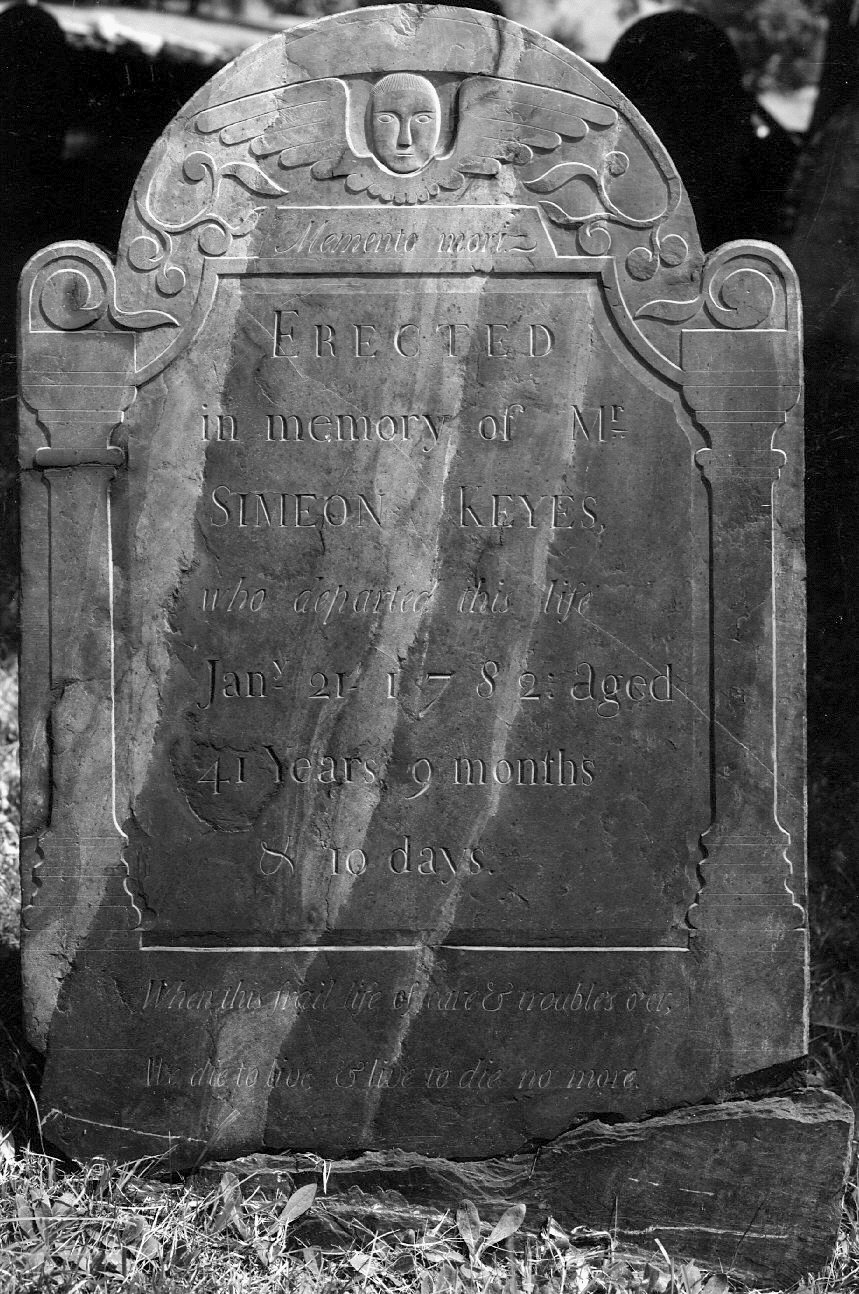 Memento mori.
ERECTED
in memory of Mr.
SIMEON KEYES,
who departed this life
Jany. 21- 1782: aged
41 Years 9 months
& 10 days.
When this frail life of care & troubles o'er,
We die to live, & live to die no more.